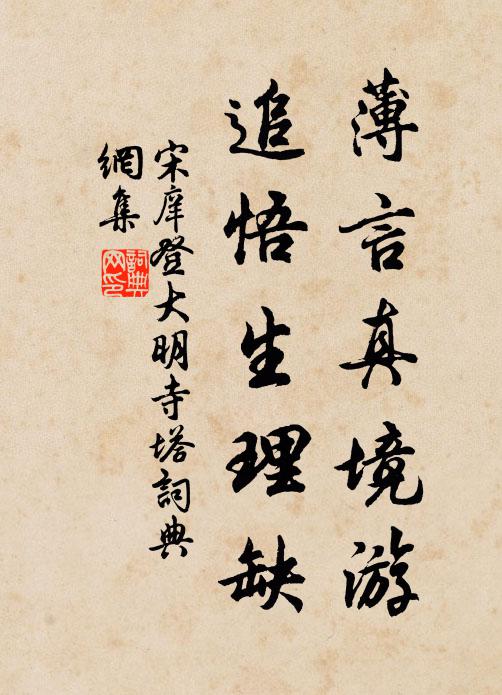 薄言真境游
追悟生理缺
宋庠登大明寺塔詞典
網集
詞典
网印